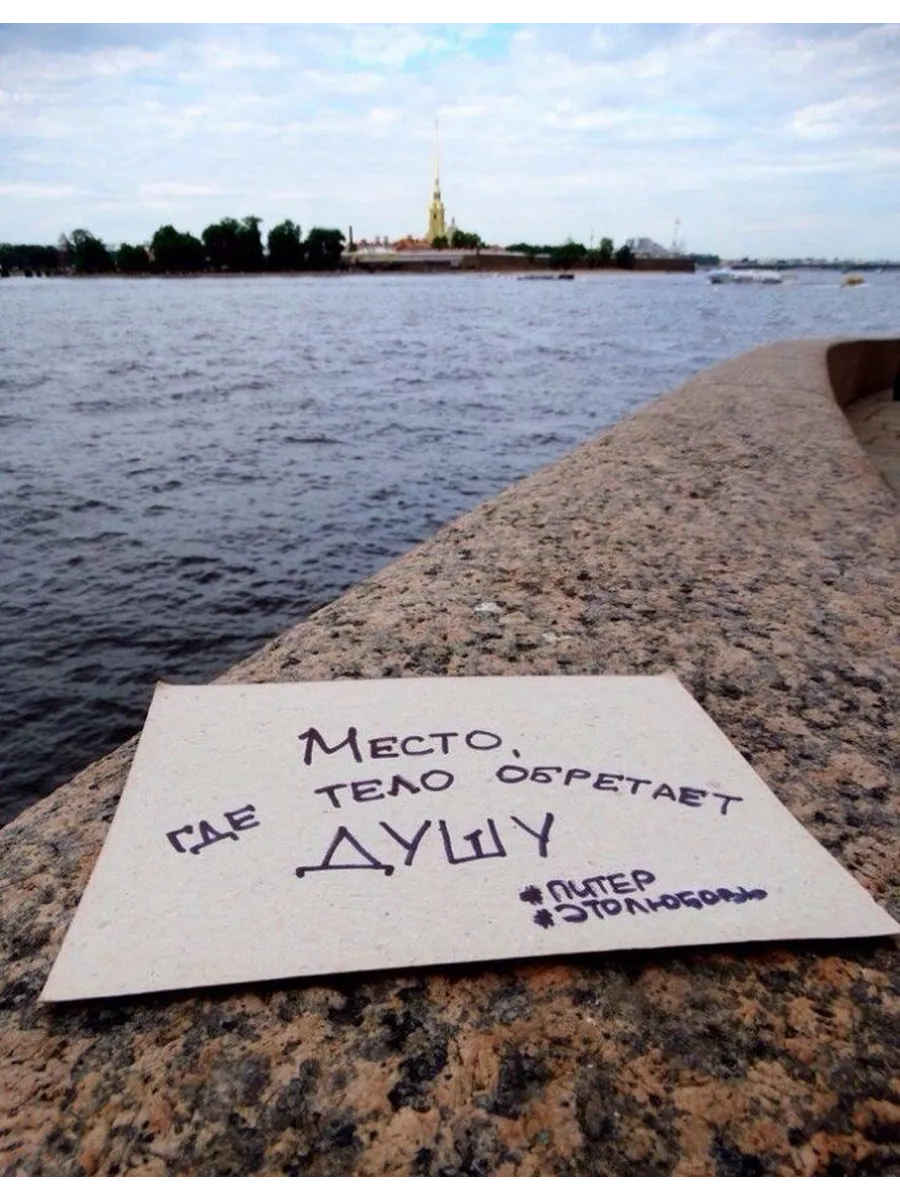 Место,
где тело обретает
душу
#питер
#этолюбовь